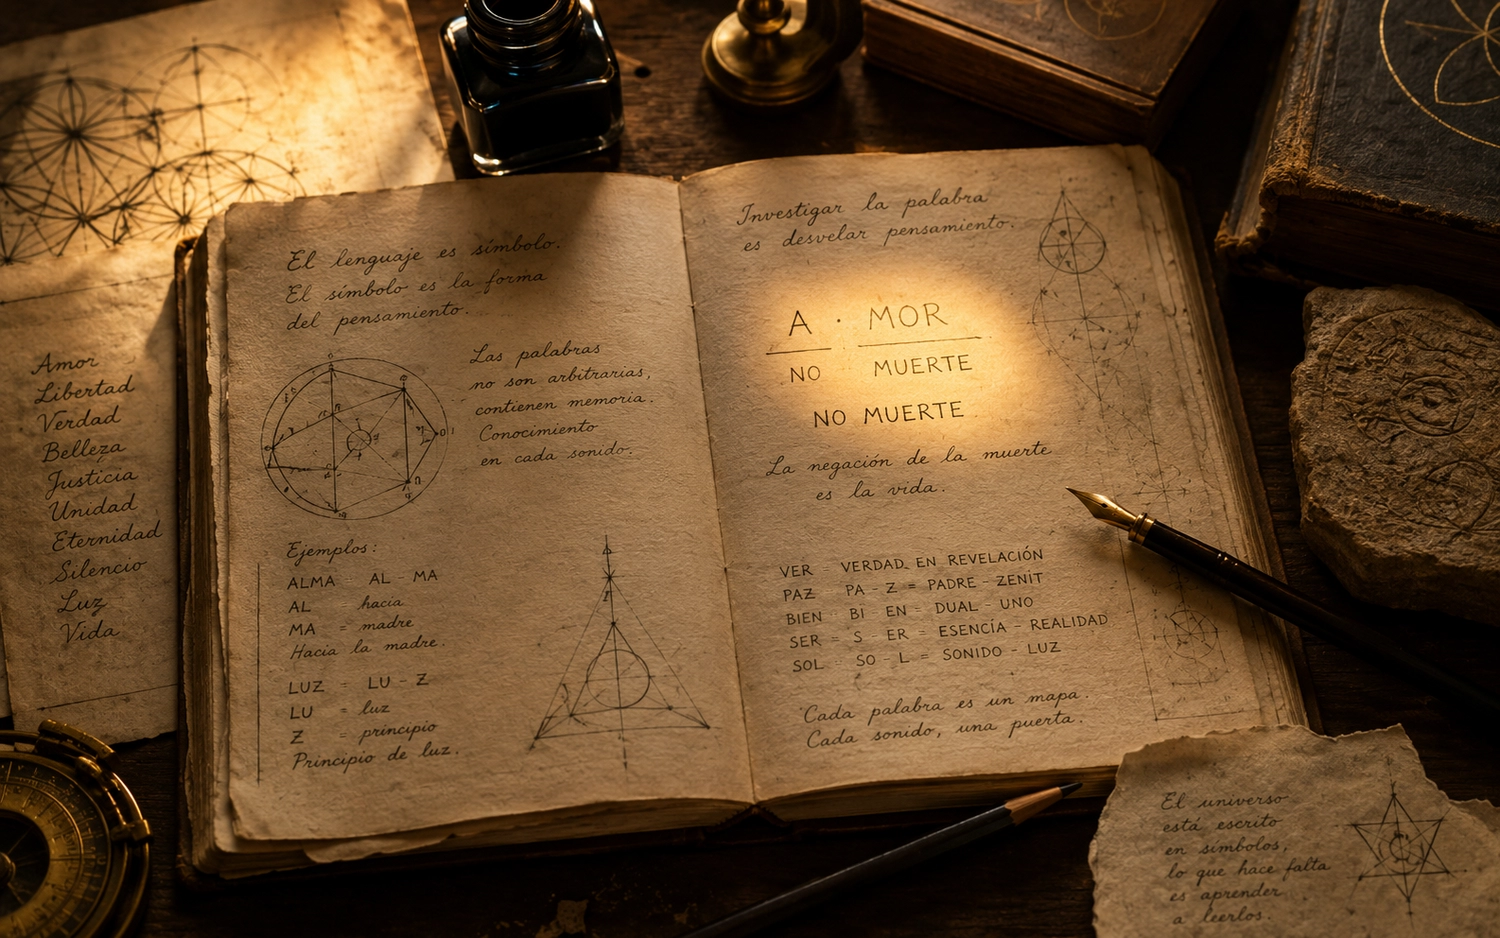 Amor
Libertad
Verdad
Belleza
Justicia
Unidad
Eternidad
Silencio
Luz
Vida
El lenguaje es símbolo.
El símbolo es la forma
del pensamiento.
Las palabras
no son arbitrarias,
contienen memoria.
Conocimiento
en cada sonido.
Ejemplos:
ALMA = AL - MA
AL = hacia
MA = madre
Hacia la madre.
LUZ = LU - Z
LU = luz
Z = principio
Principio de luz.
Investigar la palabra
es desvelar pensamiento.
A · MOR
NO MUERTE
NO MUERTE
La negación de la muerte
es la vida.
VER = VERDAD EN REVELACIÓN
PAZ = PA - Z = PADRE - ZENIT
BIEN = BI - EN = DUAL - UNO
SER = S - ER = ESENCÍA - REALIDAD
SOL = SO - L = SONIDO - LUZ
Cada palabra es un mapa.
Cada sonido, una puerta.
El universo
está escrito
en símbolos,
lo que hace falta
es aprender
a leerlos.